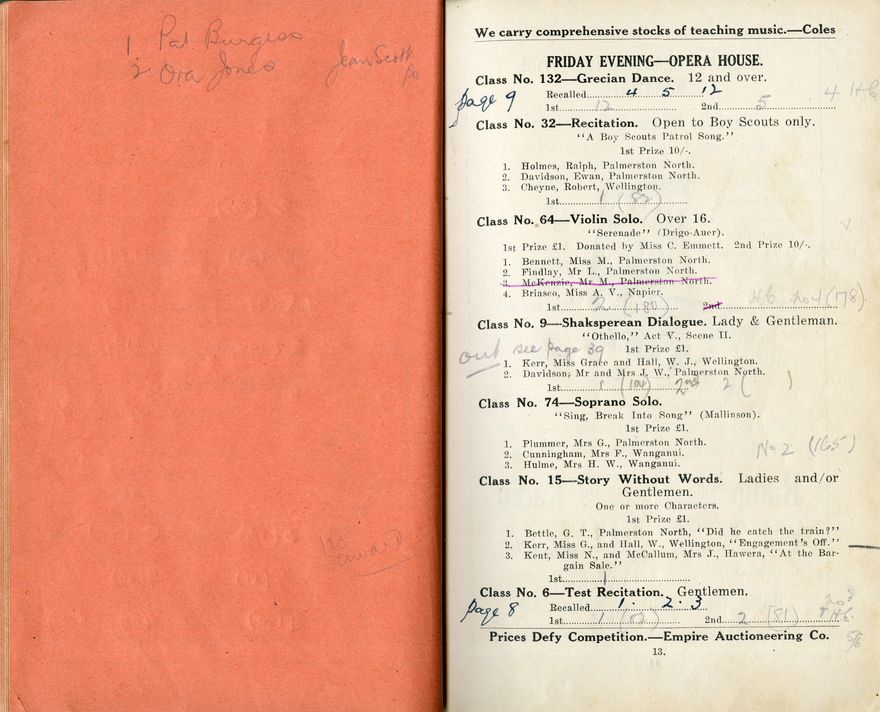 1 Pat Burgess
2 Ora Jones
Jean Scott
no
award
We carry comprehensive stocks of teaching music.—Coles
FRIDAY EVENING—OPERA HOUSE.
Class No. 132—Grecian Dance. 12 and over.
page 9
Recalled 4 5 12
1st 12 2nd 5 4 H C
Class No. 32—Recitation. Open to Boy Scouts only.
"A Boy Scouts Patrol Song."
1st Prize 10/-.
1. Holmes, Ralph, Palmerston North.
2. Davidson, Ewan, Palmerston North.
3. Cheyne, Robert, Wellington.
1st 1
Class No. 64—Violin Solo. Over 16.
"Serenade" (Drigo-Auer).
1st Prize £1. Donated by Miss C. Emmett. 2nd Prize 10/-.
1. Bennett, Miss M., Palmerston North.
2. Findlay, Mr L., Palmerston North.
3. McKenzie, Mr M., Palmerston North.
4. Briasco, Miss A. V., Napier.
1st 2 (180) 2nd H C no 4 (178)
Class No. 9—Shaksperean Dialogue. Lady & Gentleman.
"Othello," Act V., Scene II.
out see page 39
1st Prize £1.
1. Kerr, Miss Grace and Hall, W. J., Wellington.
2. Davidson, Mr and Mrs J. W., Palmerston North.
1st 1 (104) 2nd 2 ( )
Class No. 74—Soprano Solo.
"Sing, Break Into Song" (Mallinson).
1st Prize £1.
1. Plummer, Mrs G., Palmerston North.
2. Cunningham, Mrs F., Wanganui.
3. Hulme, Mrs H. W., Wanganui.
No 2 (165)
Class No. 15—Story Without Words. Ladies and/or
Gentlemen.
One or more Characters.
1st Prize £1.
1. Bettle, G. T., Palmerston North, "Did he catch the train?"
2. Kerr, Miss G., and Hall, W., Wellington, "Engagement's Off."
3. Kent, Miss N., and McCallum, Mrs J., Hawera, "At the Bar-
gain Sale."
1st 1
Class No. 6—Test Recitation. Gentlemen.
page 8
Recalled 1. 2. 3
1st 1 2nd 2 (81)
Prices Defy Competition.—Empire Auctioneering Co.
13.